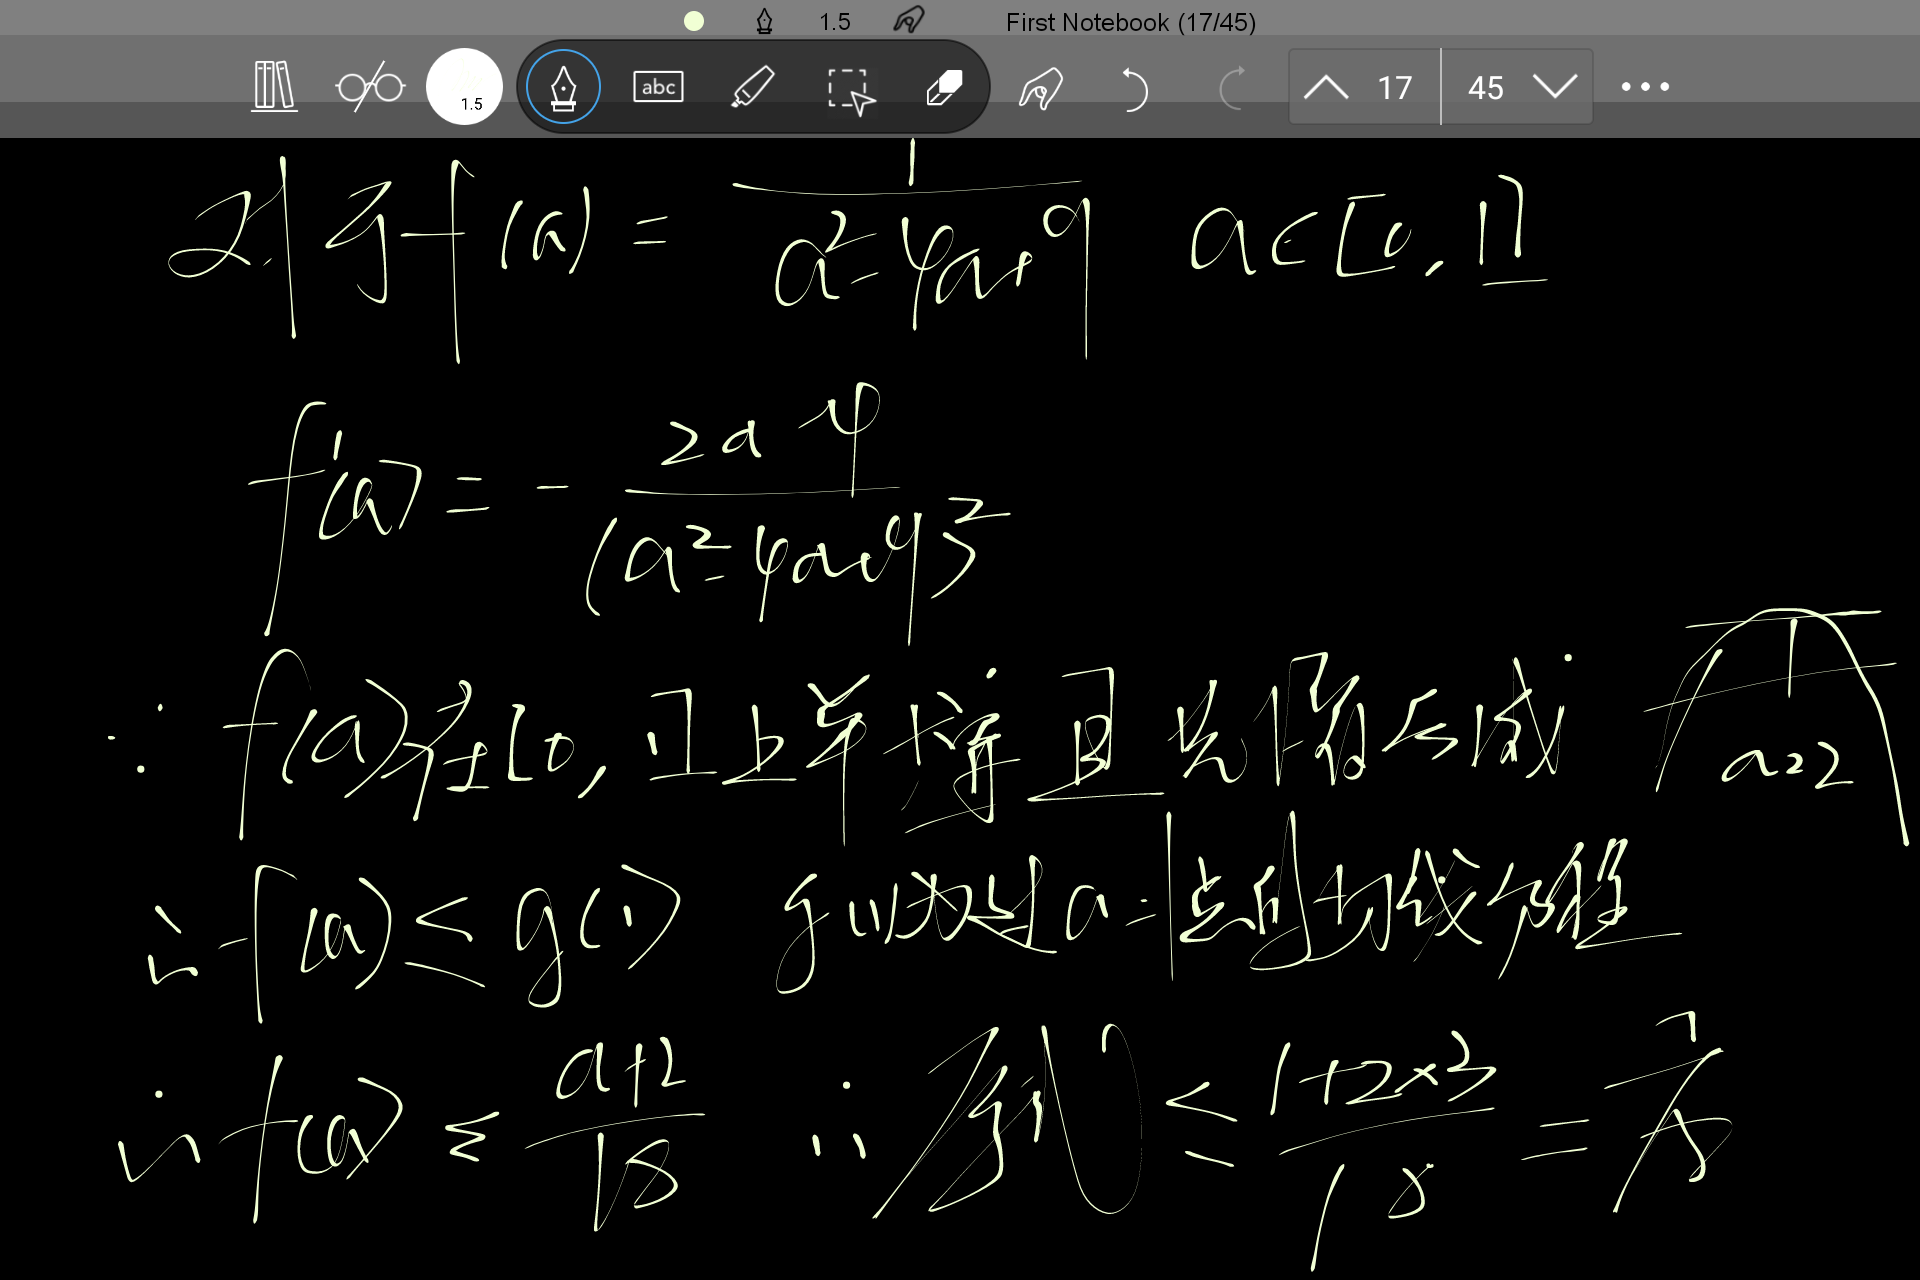 1.5 First Notebook (17/45)
1.5 abc 17 45
对于f(a) = 1/(a²-4a+9) a∈[0,1]
f'(a) = - (2a-4)/(a²-4a+9)²
∵ f(a)在[0,1]上单增且先增后减 a=2
∴ f(a) ≤ g(1) g(1)为过a=1点的切线
∴ f(a) ≤ (a+2)/18 ∴ 原式 ≤ (1+2×3)/18 = 7/18